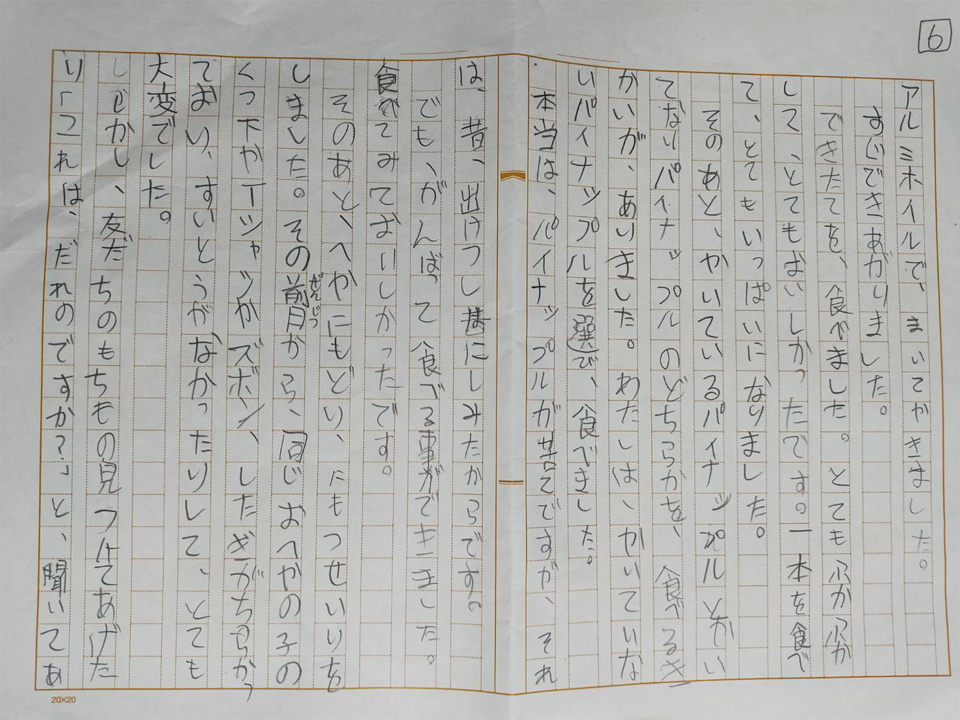 6
アルミホイルで、まいてやきました。
すじできあがりました。
できたてを、食べました。とてもふかふか
して、とてもおいしかったです。一本を食べ
て、とてもいっぱいになりました。
そのあと、かいているパイナップルとかい
てなりパイナップルのどちらかを、食べるき
かいが、ありました。わたしは、かいていな
いパイナップルを選び、食べました。
本当は、パイナップルが苦手ですが、それ
は、昔、出けつし歯にしみたからです。
でも、がんばって食べる事ができました。
食べてみておいしかったです。
そのあと、へやにもどい、にもつせいりを
しました。その前日から、同じおへやの子の
ぜんじつ
くつ下やTシャツやズボン、したぎがちらかっ
ており、すいとうがなかったりして、とても
大変でした。
しかし、友だちのもちもの見つけてあげた
り「これは、だれのですか？」と、聞いてあ
20×20